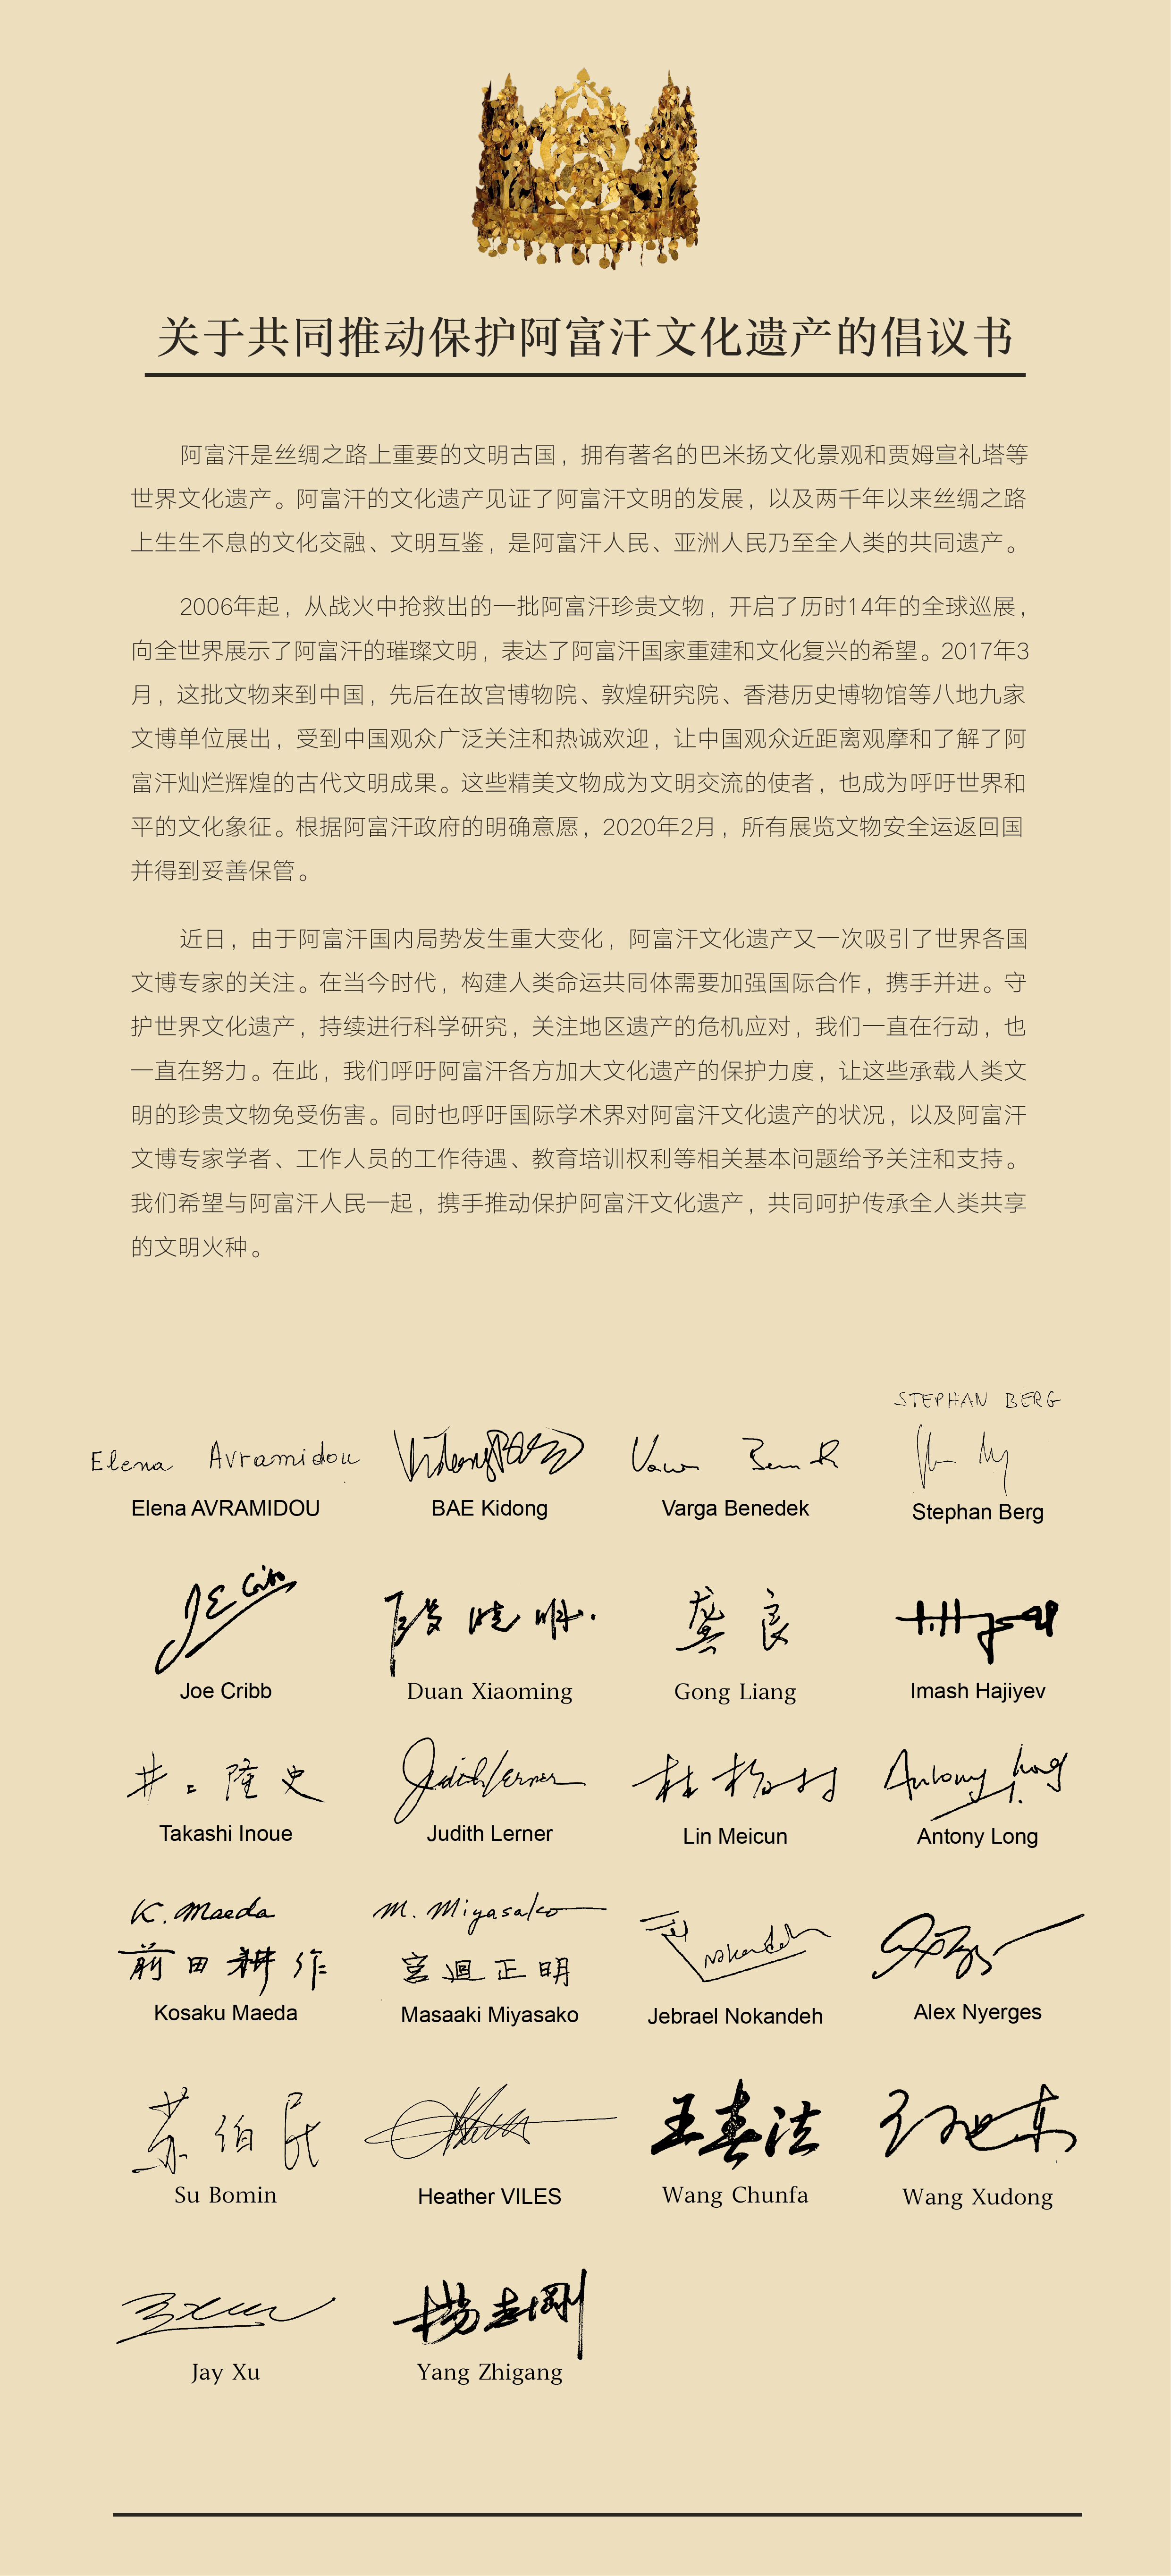 关于共同推动保护阿富汗文化遗产的倡议书
阿富汗是丝绸之路上重要的文明古国，拥有著名的巴米扬文化景观和贾姆宣礼塔等
世界文化遗产。阿富汗的文化遗产见证了阿富汗文明的发展，以及两千年以来丝绸之路
上生生不息的文化交融、文明互鉴，是阿富汗人民、亚洲人民乃至全人类的共同遗产。
2006年起，从战火中抢救出的一批阿富汗珍贵文物，开启了历时14年的全球巡展，
向全世界展示了阿富汗的璀璨文明，表达了阿富汗国家重建和文化复兴的希望。2017年3
月，这批文物来到中国，先后在故宫博物院、敦煌研究院、香港历史博物馆等八地九家
文博单位展出，受到中国观众广泛关注和热诚欢迎，让中国观众近距离观摩和了解了阿
富汗灿烂辉煌的古代文明成果。这些精美文物成为文明交流的使者，也成为呼吁世界和
平的文化象征。根据阿富汗政府的明确意愿，2020年2月，所有展览文物安全运返回国
并得到妥善保管。
近日，由于阿富汗国内局势发生重大变化，阿富汗文化遗产又一次吸引了世界各国
文博专家的关注。在当今时代，构建人类命运共同体需要加强国际合作，携手并进。守
护世界文化遗产，持续进行科学研究，关注地区遗产的危机应对，我们一直在行动，也
一直在努力。在此，我们呼吁阿富汗各方加大文化遗产的保护力度，让这些承载人类文
明的珍贵文物免受伤害。同时也呼吁国际学术界对阿富汗文化遗产的状况，以及阿富汗
文博专家学者、工作人员的工作待遇、教育培训权利等相关基本问题给予关注和支持。
我们希望与阿富汗人民一起，携手推动保护阿富汗文化遗产，共同呵护传承全人类共享
的文明火种。
STEPHAN BERG
Elena Avramidou
Elena AVRAMIDOU BAE Kidong Varga Benedek Stephan Berg
段晓明 龚良
Joe Cribb Duan Xiaoming Gong Liang Imash Hajiyev
井上隆史 Judith Lerner 林梅村 Antony Long
Takashi Inoue Judith Lerner Lin Meicun Antony Long
K. Maeda M. Miyasako
前田耕作 宮廻正明 Nokandeh
Kosaku Maeda Masaaki Miyasako Jebrael Nokandeh Alex Nyerges
苏伯民 王春法 王旭东
Su Bomin Heather VILES Wang Chunfa Wang Xudong
杨志刚
Jay Xu Yang Zhigang